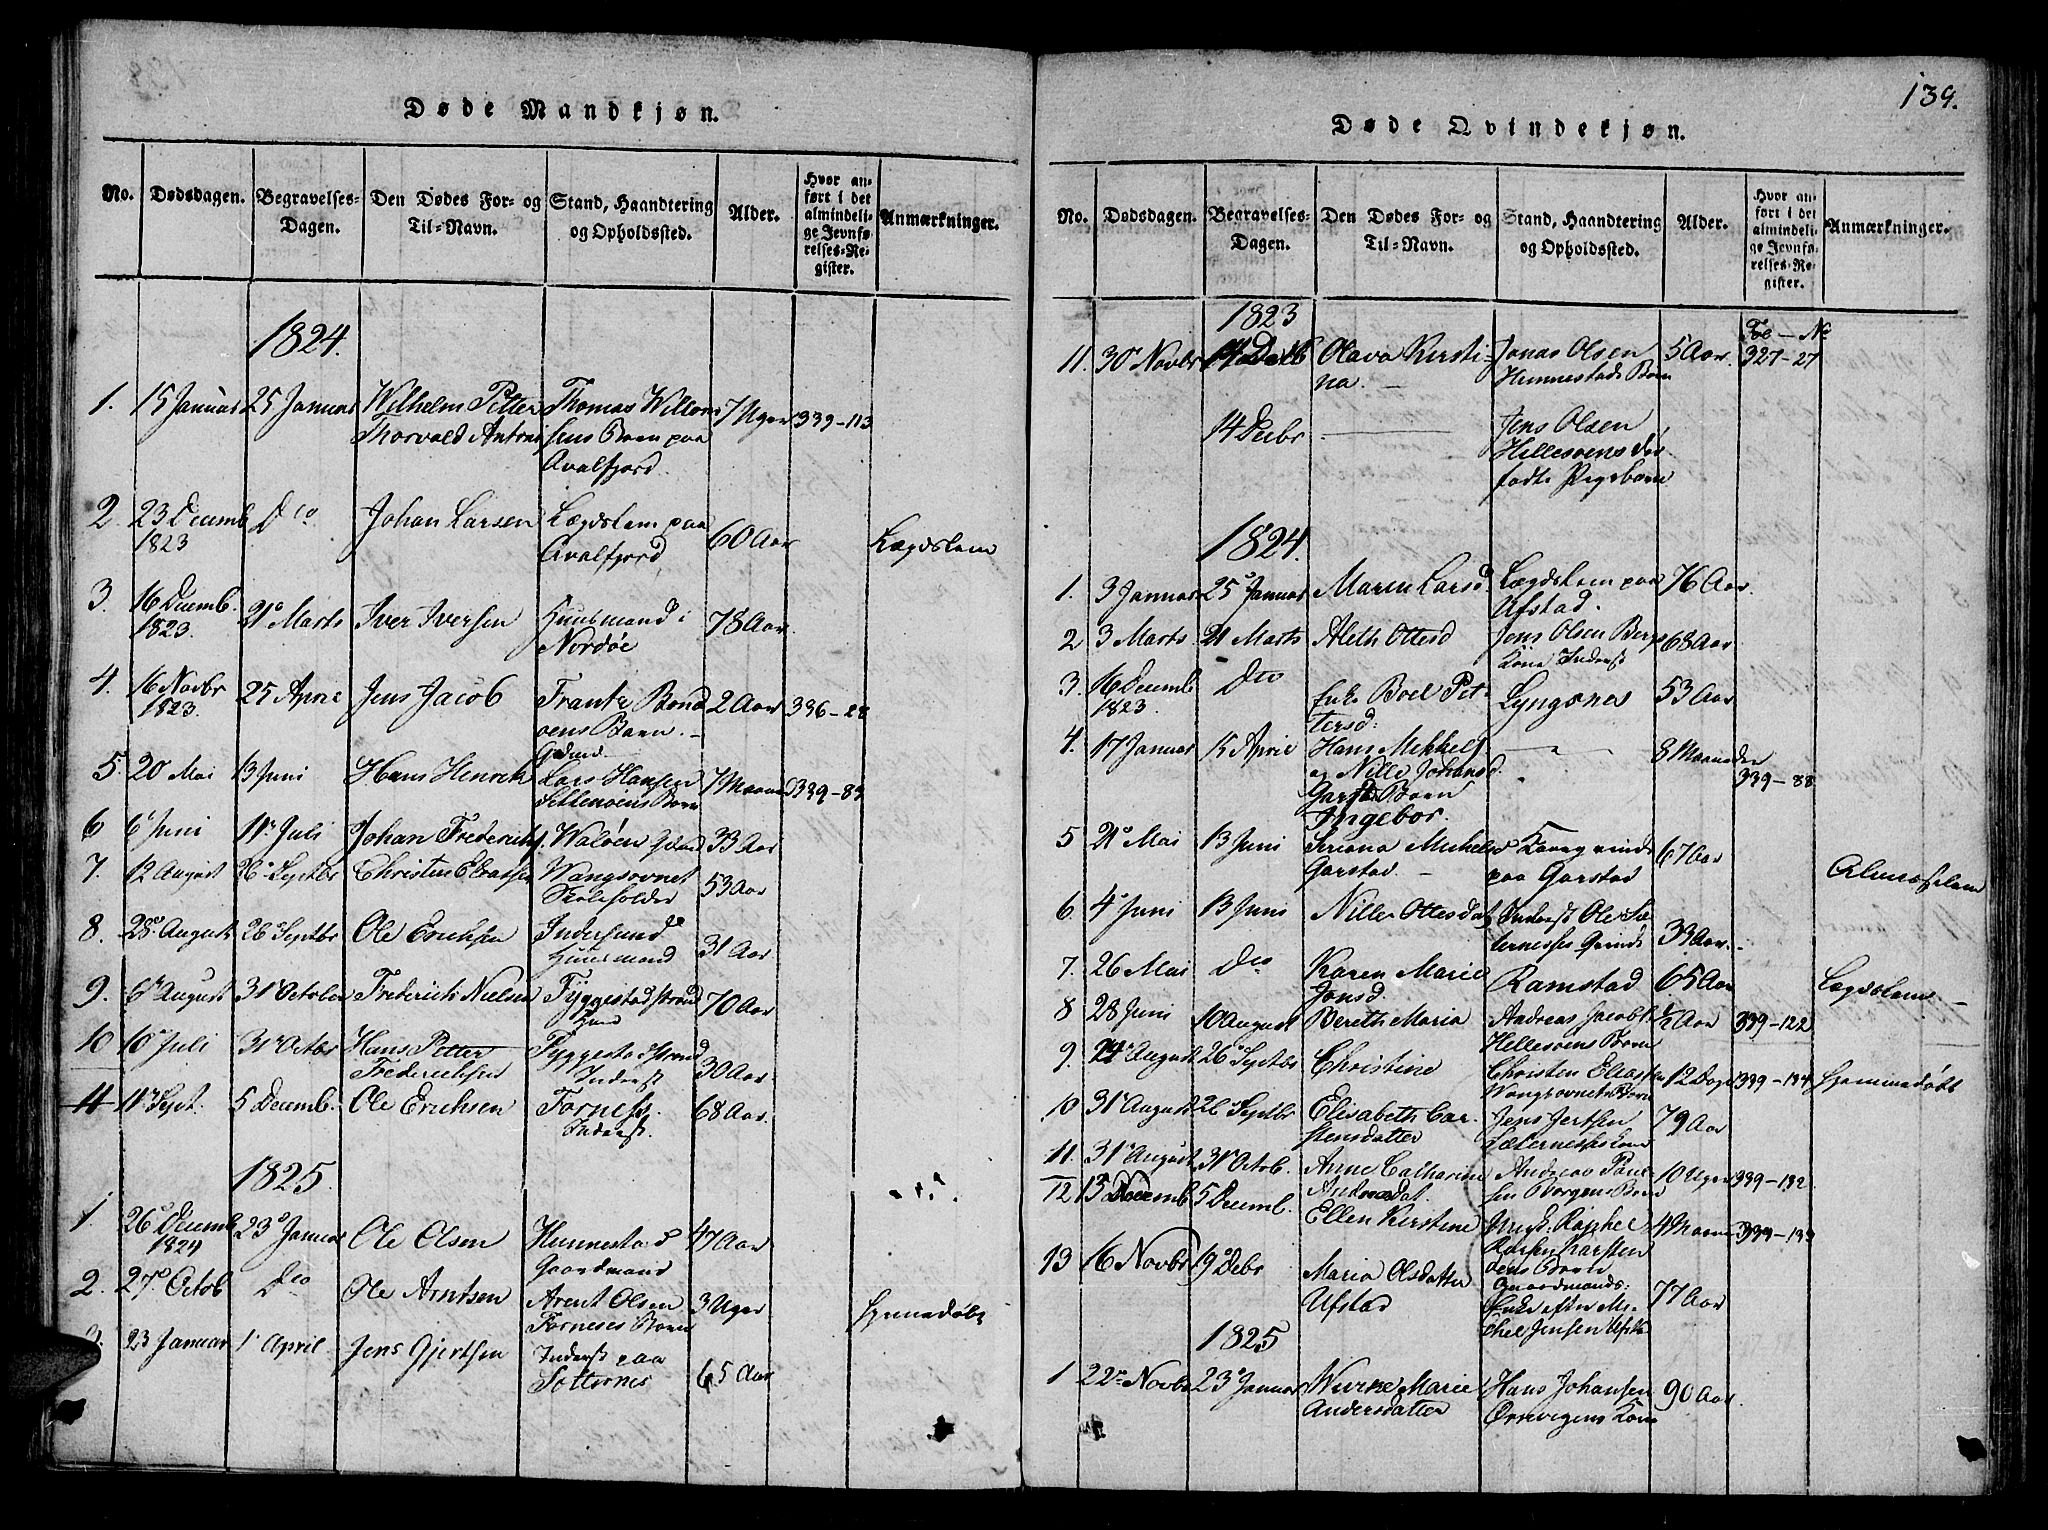 139.
Døde Mandkjøn.
No. Dødsdagen. Begravelses-Dagen. Den Dødes For- og Til-Navn. Stand, Haandtering og Opholdssted. Alder. Hvor anført i det almindelige Jevnførelses-Register. Anmærkninger.
1824.
1. 15 Januar 25 Januar Wilhelm Petter Thomas Willom 7 Uger 339-113
Thorvald Antoni sens Barn paa
Avalfjord.
2. 23 Decemb Dco Johan Larsen Lægdslem paa 60 Aar Lægdslem
1823 Avalfjord
3. 16 Decemb. 21 Marts Iver Iversen Huusmand i 78 Aar
1823. Nordøe
4. 16 Novbr 25 April Jens Jacob Frantz Bend 2 Aar 336-28
1823. oens Barn.
5. 20 Mai 13 Juni Hans Henrik Lars Hansen 7 Maaned 339-83
Barn
6 6 Juni 11 Juli Johan Frederich Waløen 33 Aar
7. 12 August 26 Septbr Christen Eliassen Wangsovnet 53 Aar
Skoleholder
8. 28 August 26 Septbr Ole Erichsen Indersund 31 Aar
Huusmand
9. 6 August 31 October Frederich Nielsen Fyggestadstrand 70 Aar
10 10 Juli 31 Octbr Hans Petter Fyggestadstrand 30 Aar
Frederichsen Inderst
11 11 Sept. 5 Decemb. Ole Erichsen Fornes 68 Aar
Inderst.
1825.
1. 26 Decemb 23 Januar Ole Olsen Hunnestad 47 Aar
1824 Gaardmand
2. 27 Octob Dco Ole Arntsen Arent Olsen 3 Uger Hjemmedøbt
Forneses Barn
3. 23 Januar 1 April. Jens Gjertsen Inderst paa 65 Aar
Setternes
Døde Qvindekjøn.
No. Dødsdagen. Begravelses-Dagen. Den Dødes For- og Til-Navn. Stand, Haandtering og Opholdssted. Alder. Hvor anført i det almindelige Jevnførelses-Register. Anmærkninger.
1823
Fol - No
11. 30 Novbr 14 Decb Olava Kersti- Jonas Olsen 5 Aar. 327-27
na. Hunnestads Barn
14 Decbr Jens Olsen
Hillesoens død
fødte Pigebarn
1824.
1. 3 Januar 25 Januar Maren Larsd. Lægdslem paa 76 Aar.
Ufstad.
2 3 Marts 21 Marts Aleth Ottersd Jens Olsen Bergs 68 Aar
Kone Inderst
3. 16 Decemb Dco Enke Boel Pet- Lyngsnes 53 Aar
1823. tersd:
4. 17 Januar 15 April Hans Mikkels. 8 Maaneder
og Nille Johansd. 339-88
Garst. Barn
Ingebor.
5 21 Mai 13 Juni Seriana Michelsd Kaarqvinde 67 Aar Almoselem
Garstad paa Garstad
6. 4 Juni 13 Juni Nille Ottesdat, Inderst Ole Sæ 33 Aar.
ternesses Qvinde
7. 26 Mai Dco Karen Marie Ramstad 65 Aar Lægdslem
Jonsd
8 28 Juni 10 August Bereth Maria Andreas Jacobs. 1/2 Aar 339-122
Hillesoens Barn
9. 24 August 26 Septbr Christine Christen Eliassen 12 Dage 339-134 Hjemmedøbt
Wangsovnets Barn
10 31 August 26 Septbr Elisabeth Car- Jens Jertsen 79 Aar
stensdatter Sæternesses Kone
11. 31 August 31 Octob. Anne Catharine Andreas Paul- 10 Uger 339-132
Andreasdat. sen Borgens Barn
12 15 Decemb 5 Decemb. Ellen Kirstine Raphel 4 Maaneder 339-133
Barn
13 16 Novbr 19 Debr Maria Olsdatter Gaardmands 77 Aar
Ufstad Enke efter Mi-
chel Jensen Ufst.
1825
1 22 Novbr 23 Januar Marie Hans Johansen 90 Aar.
Andersdatter Ørsvogens Kone